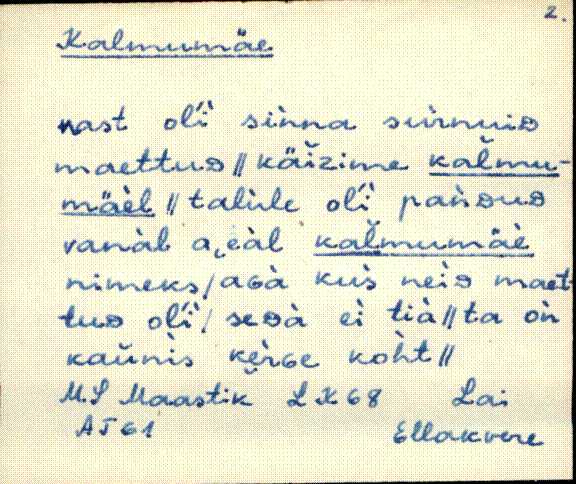 2.
Kalmumäe
nast oĺì sìnna suŕnuiᴅ
maettuᴅ // käìzime kalmu-
mäèl // talùle oĺì pànᴅuᴅ
vanàl aeàl kalmumäè
nimeks / aɢà kus neiᴅ maet-
tuᴅ oĺì / seᴅà ei tià // ta òn
kaùnis kèrɢe koht //
M. S Maastik L X 68 Lai
AT 61 Ellakvere